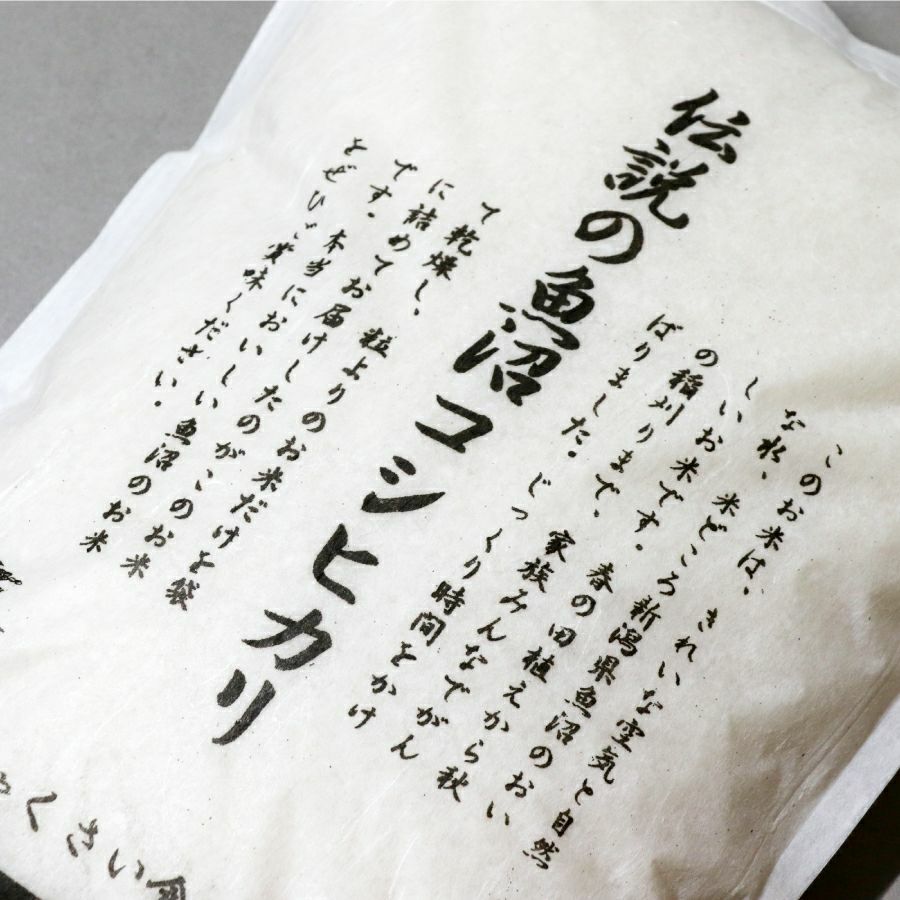 このお米は、きれいな空気と自然
な水、米どころ新潟県魚沼のおい
しいお米です。春の田植えから秋
の稲刈りまで、家族みんなでがん
ばりました。じっくり時間をかけ
伝説の魚沼コシヒカリ
て乾燥し、粒よりのお米だけを袋
に詰めてお届けしたのが、このお米
です。本当においしい魚沼のお米
をぜひご賞味ください。
くさい